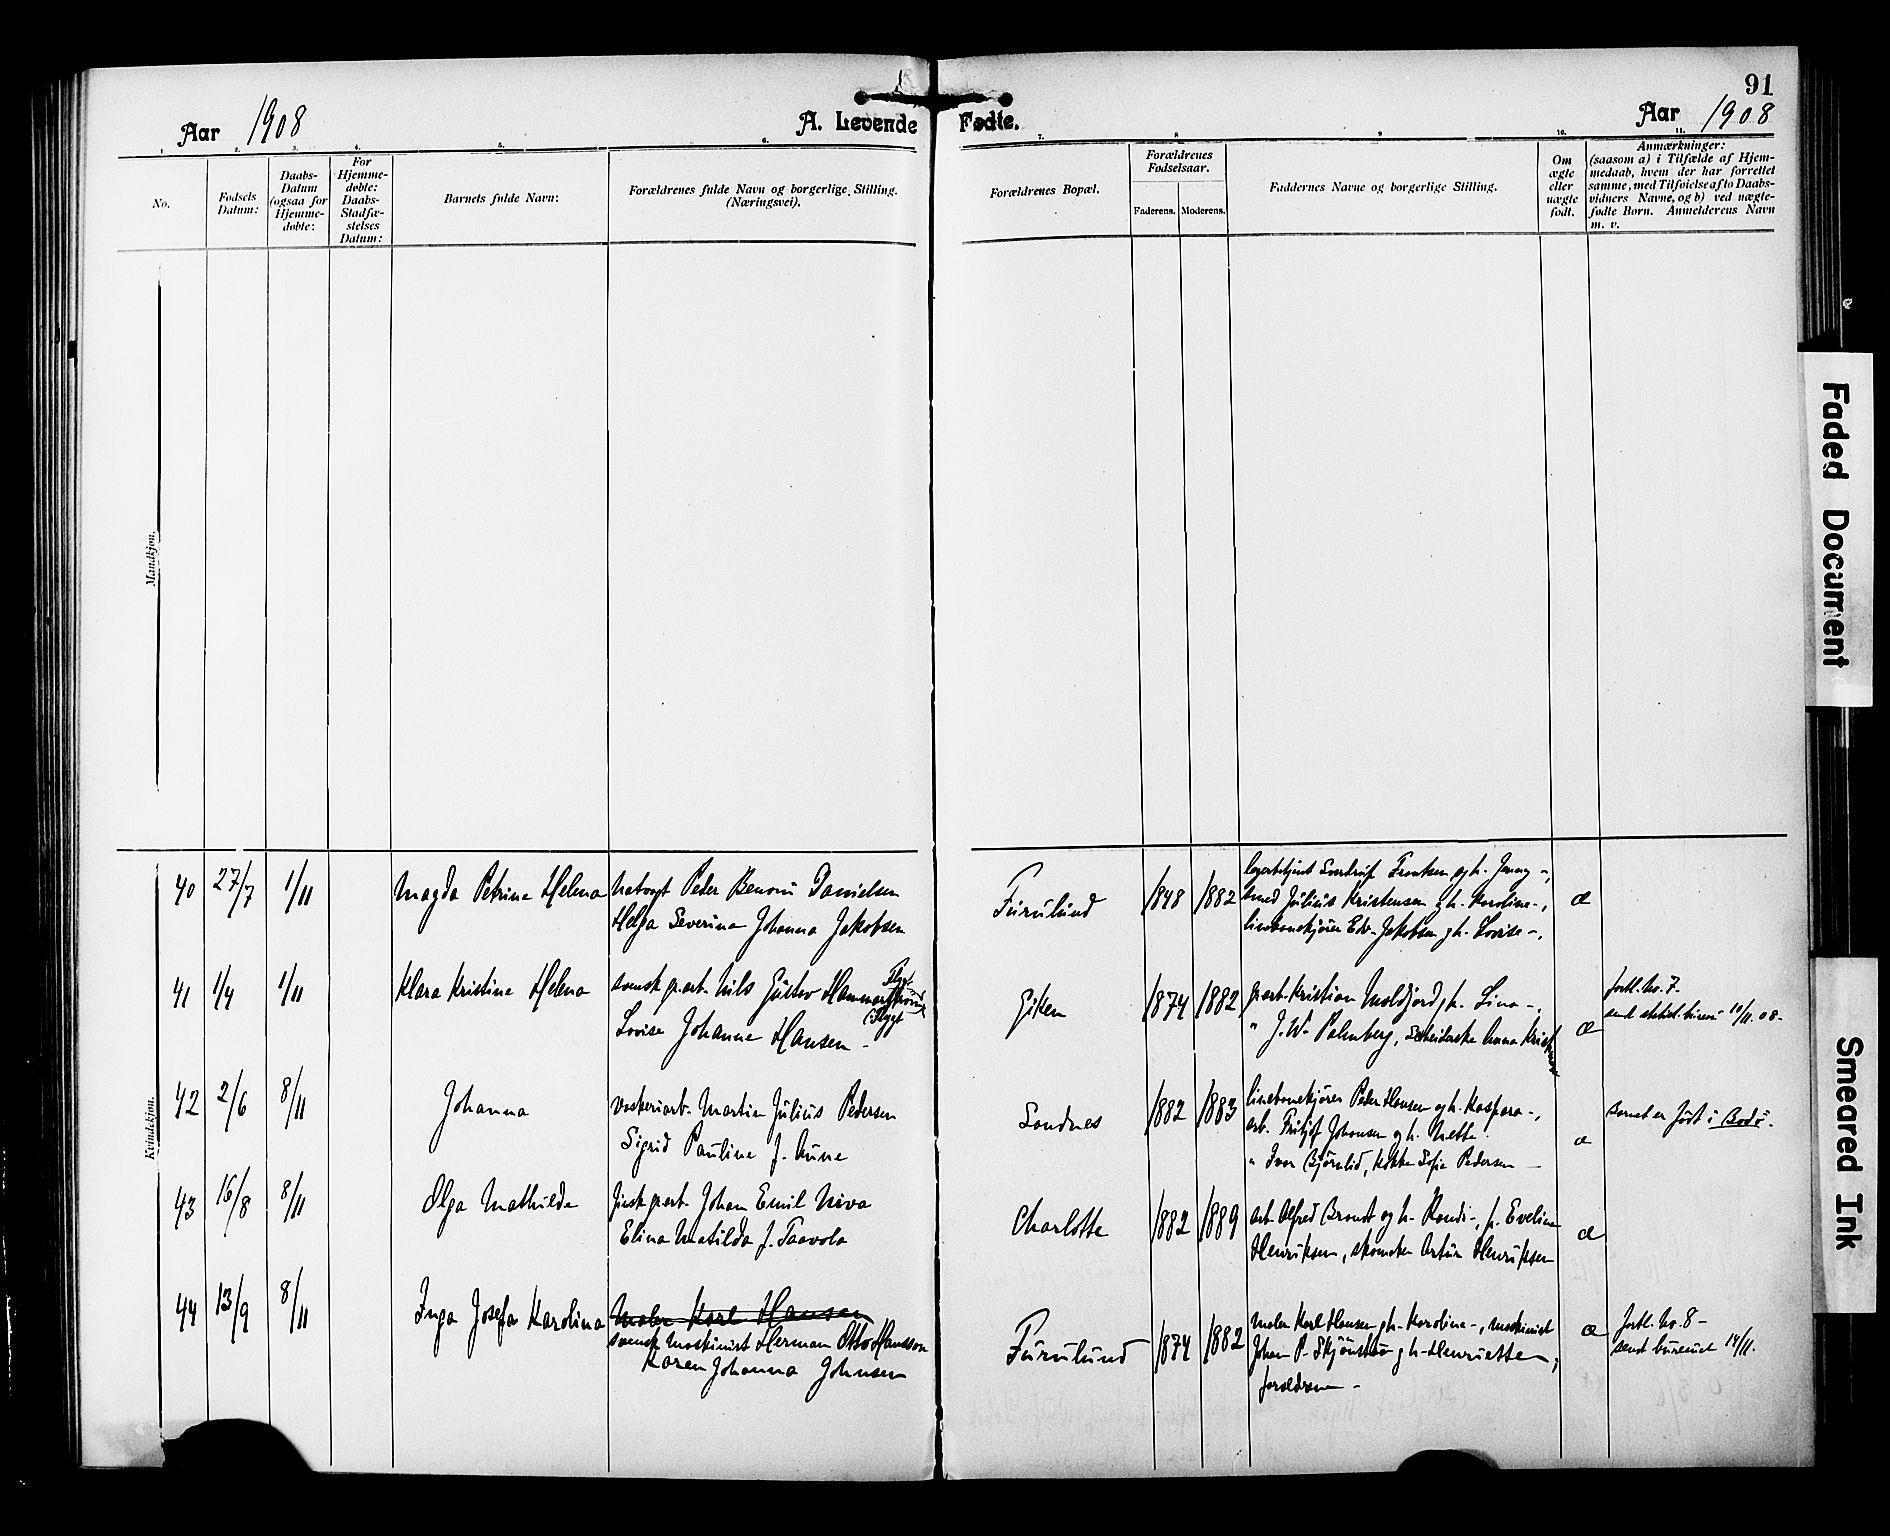 91
Aar 1908
A. Levende Fødte.
Aar 1908
1. 2. 3. 4. 5. 6. 7. 8. 9. 10. 11.
No.
Fødsels Datum:
Daabs-
Datum
(ogsaa for
Hjemme-
døbte:
For
Hjemme-
døbte:
Daabs-
Stadfæ-
stelses
Datum:
Barnets fulde Navn:
Forældrenes fulde Navn og borgerlige Stilling.
(Næringsvei).
Forældrenes Bopæl.
Forældrenes
Fødselsaar.
Faderens. Moderens.
Faddernes Navne og borgerlige Stilling.
Om
ægte
eller
uægte
født.
Anmærkninger:
(saasom a) i Tilfælde af Hjem-
medaab, hvem der har forrettet
samme, med Tilføielse af to Daabs-
vidners Navne, og b) ved uægte-
fødte Børn. Anmelderens Navn
m. v.
Mandkjøn.
Kvindekjøn.
40 27/7 1/11 Magda Petrine Helena
Peder Benoni Danielsen
Helga Severina Johanna Jakobsen
Furulund 1848 1882
Jenny -,
Julius Kristensen og h. Karoline -,
linebanekjører Edv. Jakobsen og h. Lovise -.
æ
41 1/4 1/11 Klara Kristine Helena
svensk grarb. Nils Gustav
Lovise Johanne Hansen -
Giken 1874 1882
grarb. Kristian Moldjord og h. Lina -,
" J. W. Palmberg, Anna
æ
fortl. No. 7-
sendt statist. bureau 10/11. 08-
42 2/6 8/11 Johanna
vaskeriarb. Martin Julius Pedersen
Sigrid Pauline J. Aune
Sandnes 1882 1883
linebanekjører Peder Hansen og h. Kaspara -,
arb. Fritjof Johansen og h. Nette -
" Ivar Bjørnlid, kokke Sofie Pedersen -
æ
Barnet er født i Bodø.
43 16/8 8/11 Olga Mathilde
finsk grarb. Johan Emil Niva
Elina Matilda J. Taavola
Charlotta 1882 1889
arb. Alfred Brandt og h. Randi -, p. Eveline
Henriksen, skomaker Artur Henriksen
æ
44 13/9 8/11 Inga Josefa Karolina
Maler Karl Hansen
svensk maskinist Herman Otto Hansson
Karen Johanna Johnsen
Furulund 1874 1882
maler Karl Hansen og h. Karoline -, maskinist
Johan P. og h. Henriette,
forældrene -
æ
fortl. No. 8 -
sendt bureauet 14/11.
Faded Document
Smeared Ink